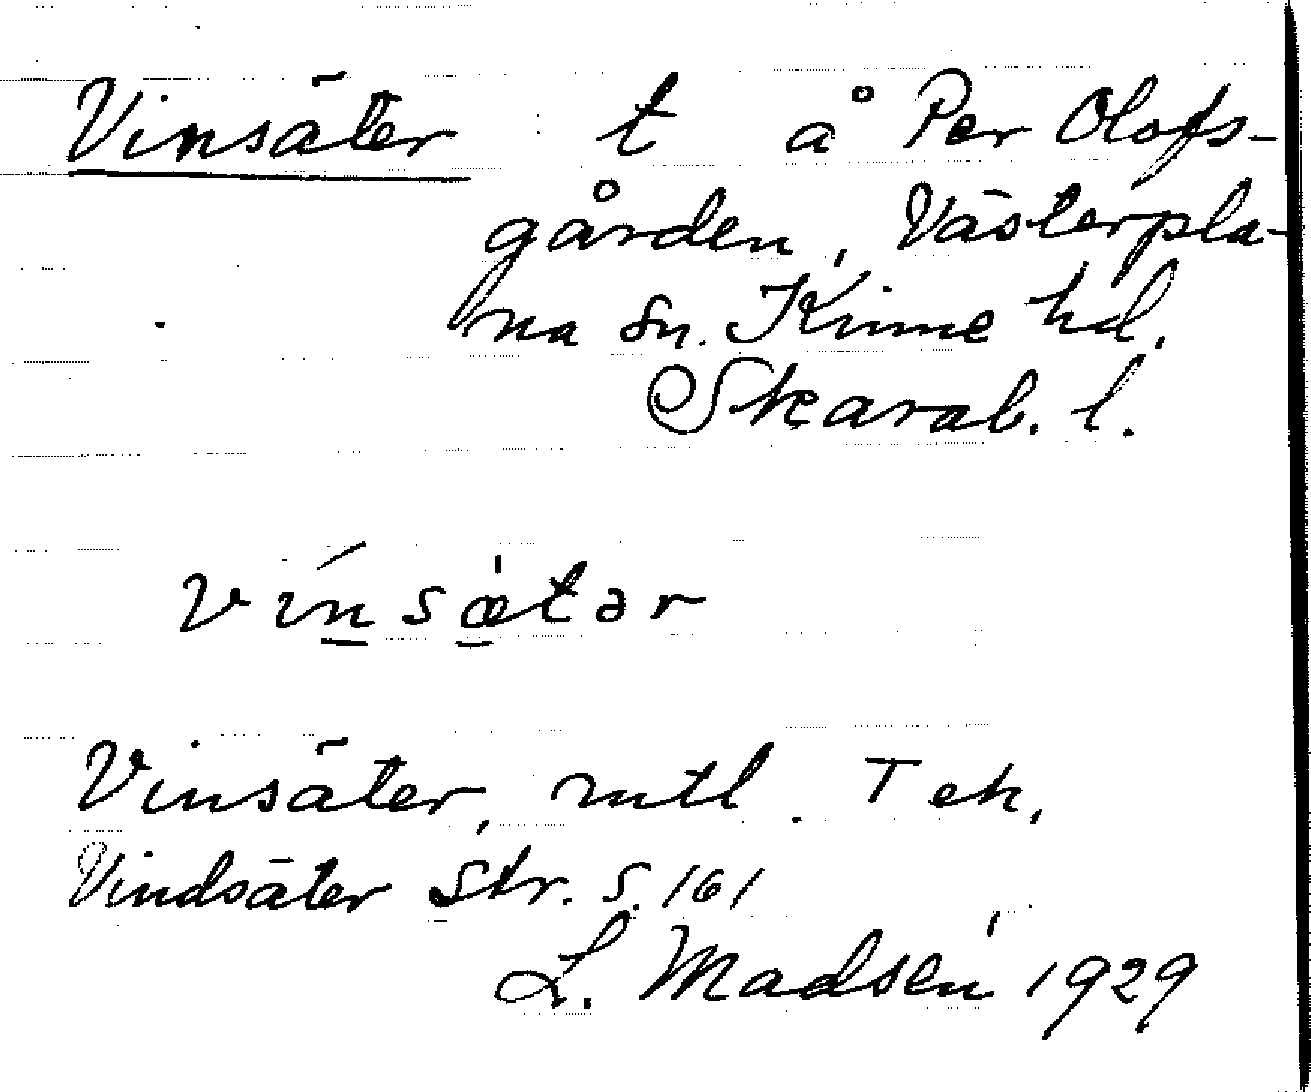 Vinsäter t å Per Olofs-
gården, Västerpla-
na sn. Kinne hd.
Skarab. l.
vínsǽtər
Vinsäter, mtl. Tek,
Vindsäter Str. S. 161
L. Madsén 1929